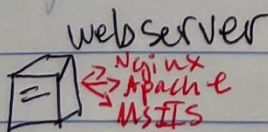 webserver
Nginx
Apache
MSIIS